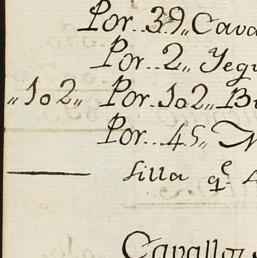 Por. 39,, Cava
Por.. 2,, Yegu
,,102,, Por. 102,, Bu
Por.. 45,, N
silla q.e
Cavallos